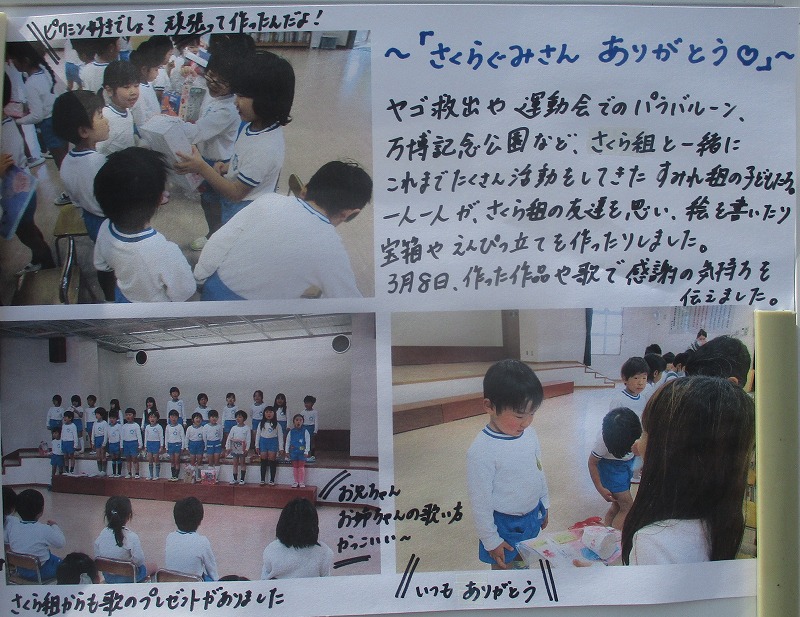 ピクミン好きでしょ？頑張って作ったんだよ！
～「さくらぐみさん ありがとう♡」～
ヤゴ救出や運動会でのパラバルーン、
万博記念公園など、さくら組と一緒に
これまでたくさん活動をしてきたすみれ組の子どもたち。
一人一人が、さくら組の友達を思い、絵を書いたり
宝箱やえんぴつ立てを作ったりしました。
3月8日、作った作品や歌で感謝の気持ちを
伝えました。
お兄ちゃん
お姉ちゃんの歌い方
かっこいい～
さくら組からも歌のプレゼントがありました
いつも ありがとう